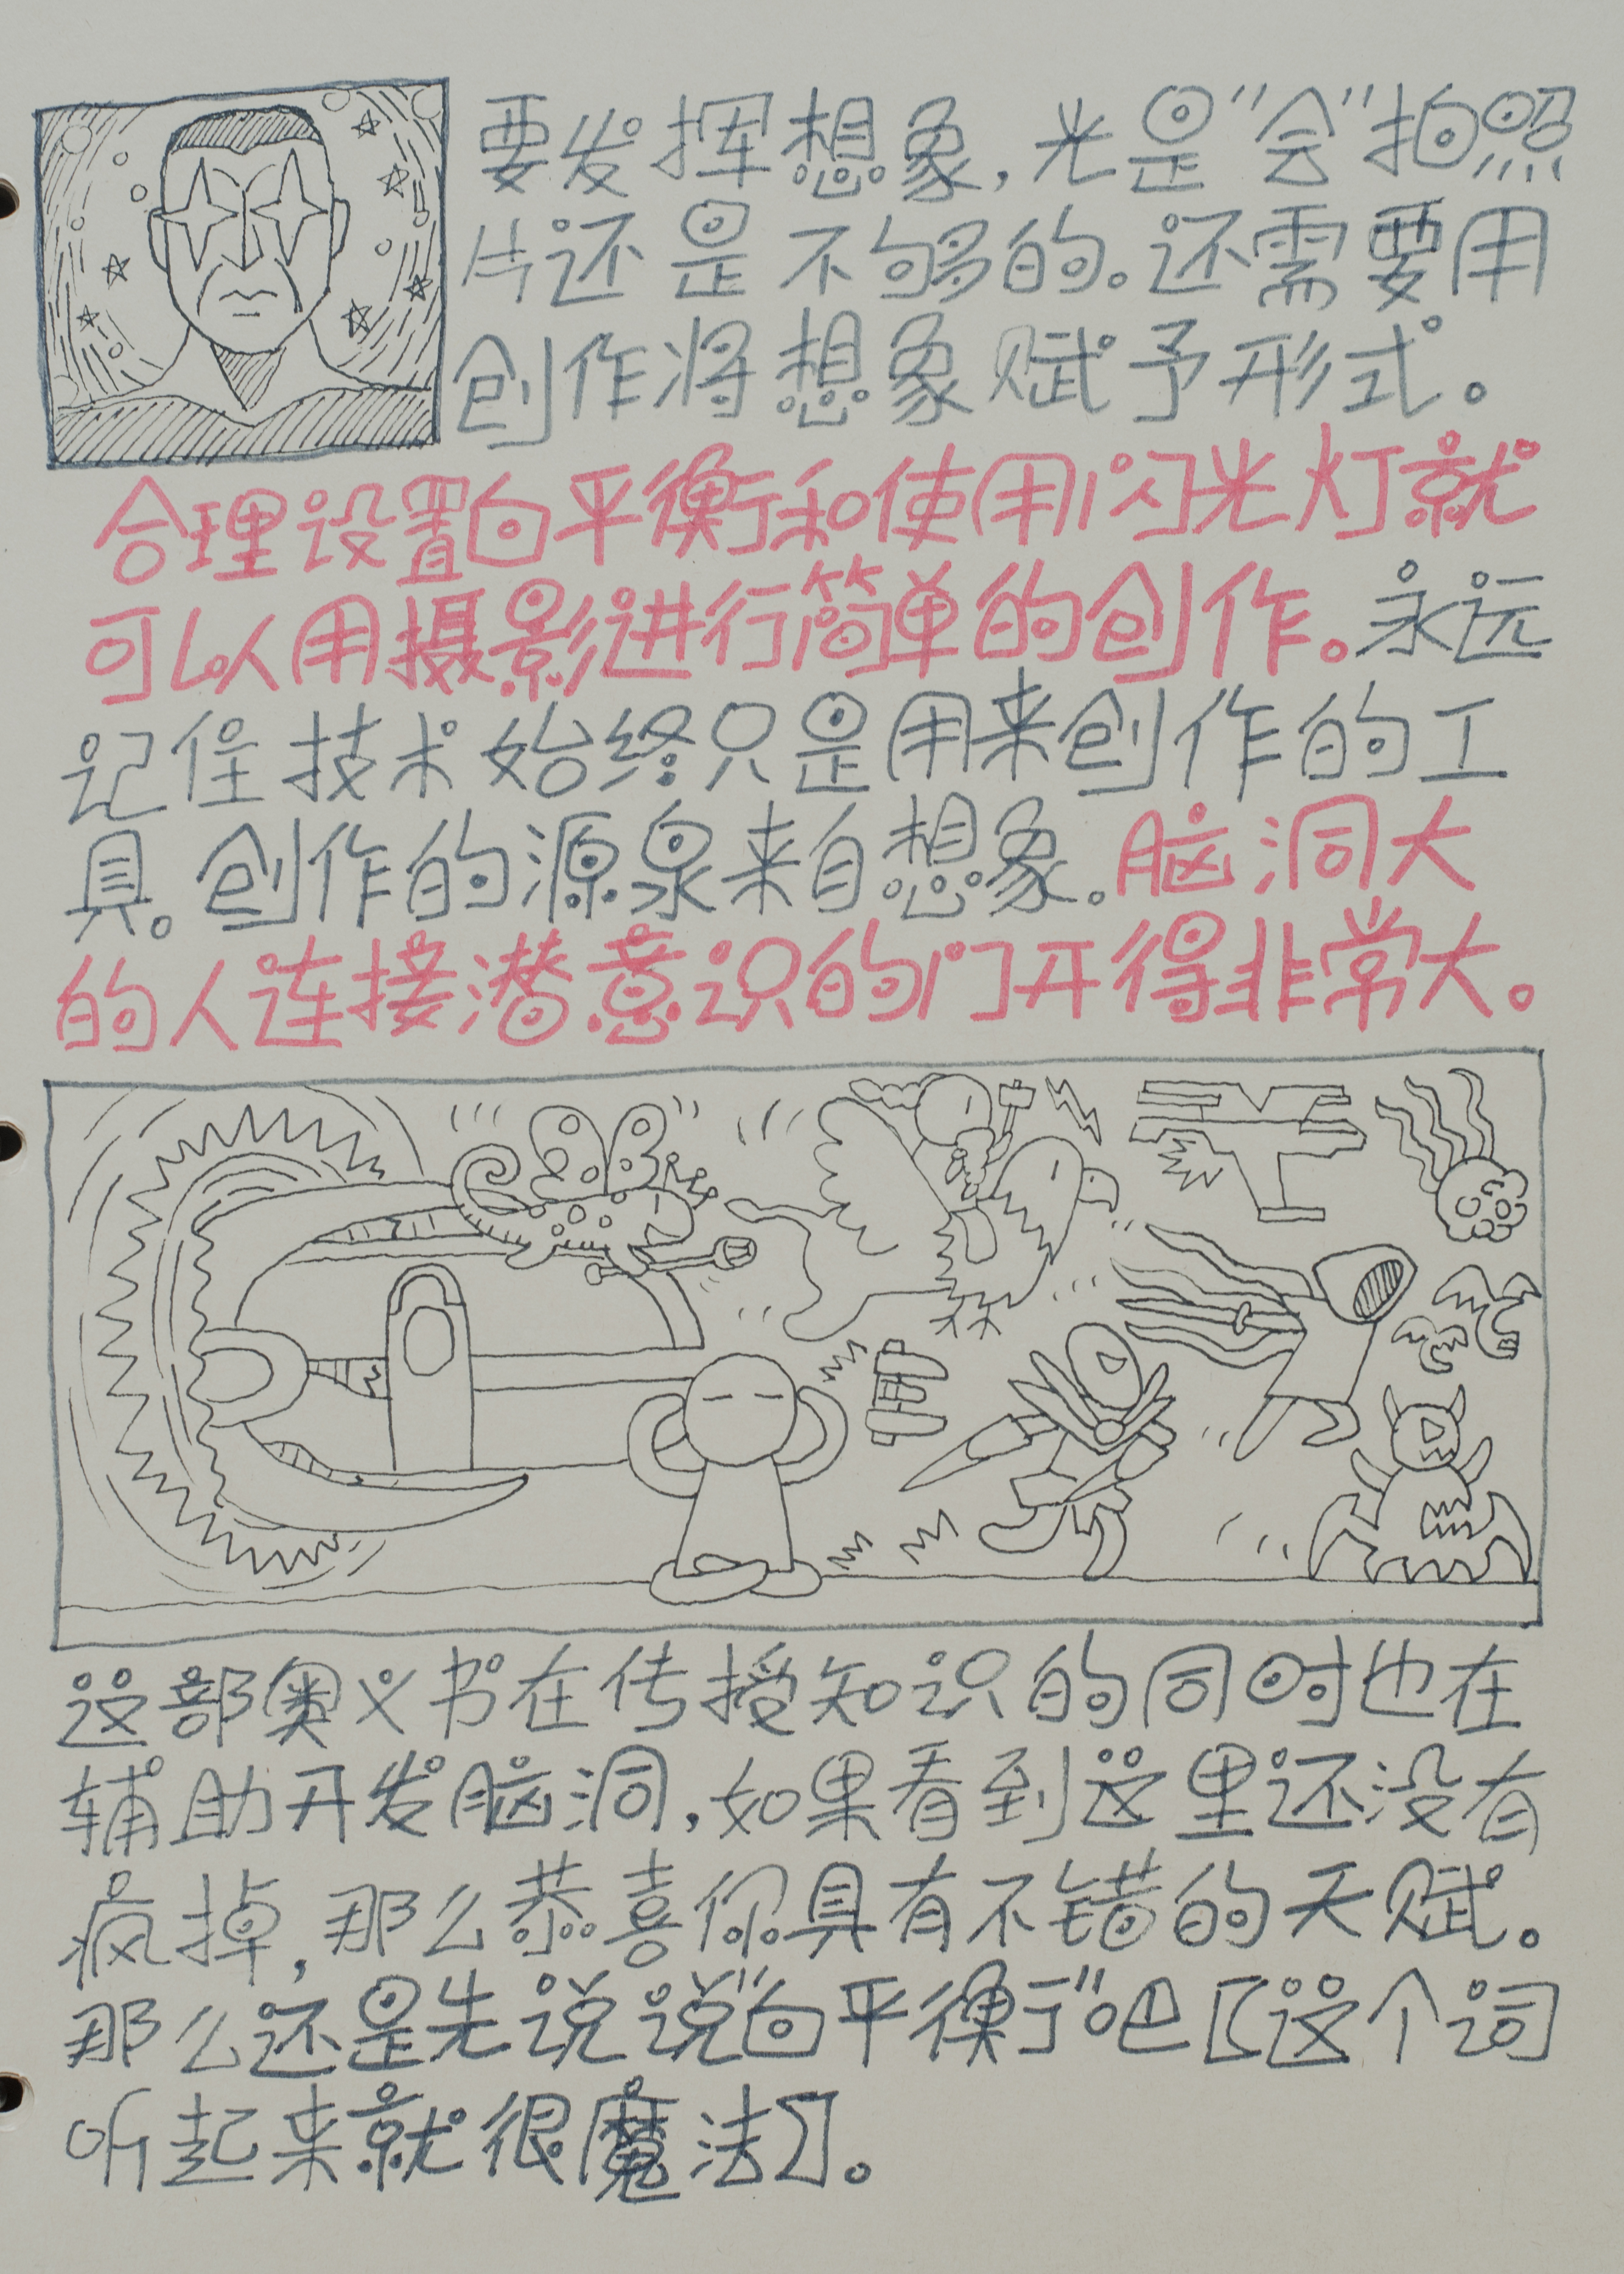 要发挥想象，光是“会”拍照
片还是不够的。还需要用
创作将想象赋予形式。
合理设置白平衡和使用闪光灯就
可以用摄影进行简单的创作。永远
记住技术始终只是用来创作的工
具。创作的源泉来自想象。脑洞大
的人连接潜意识的门开得非常大。
这部奥义书在传授知识的同时也在
辅助开发脑洞，如果看到这里还没有
疯掉，那么恭喜你具有不错的天赋。
那么还是先说说“白平衡”吧【这个词
听起来就很魔法】。